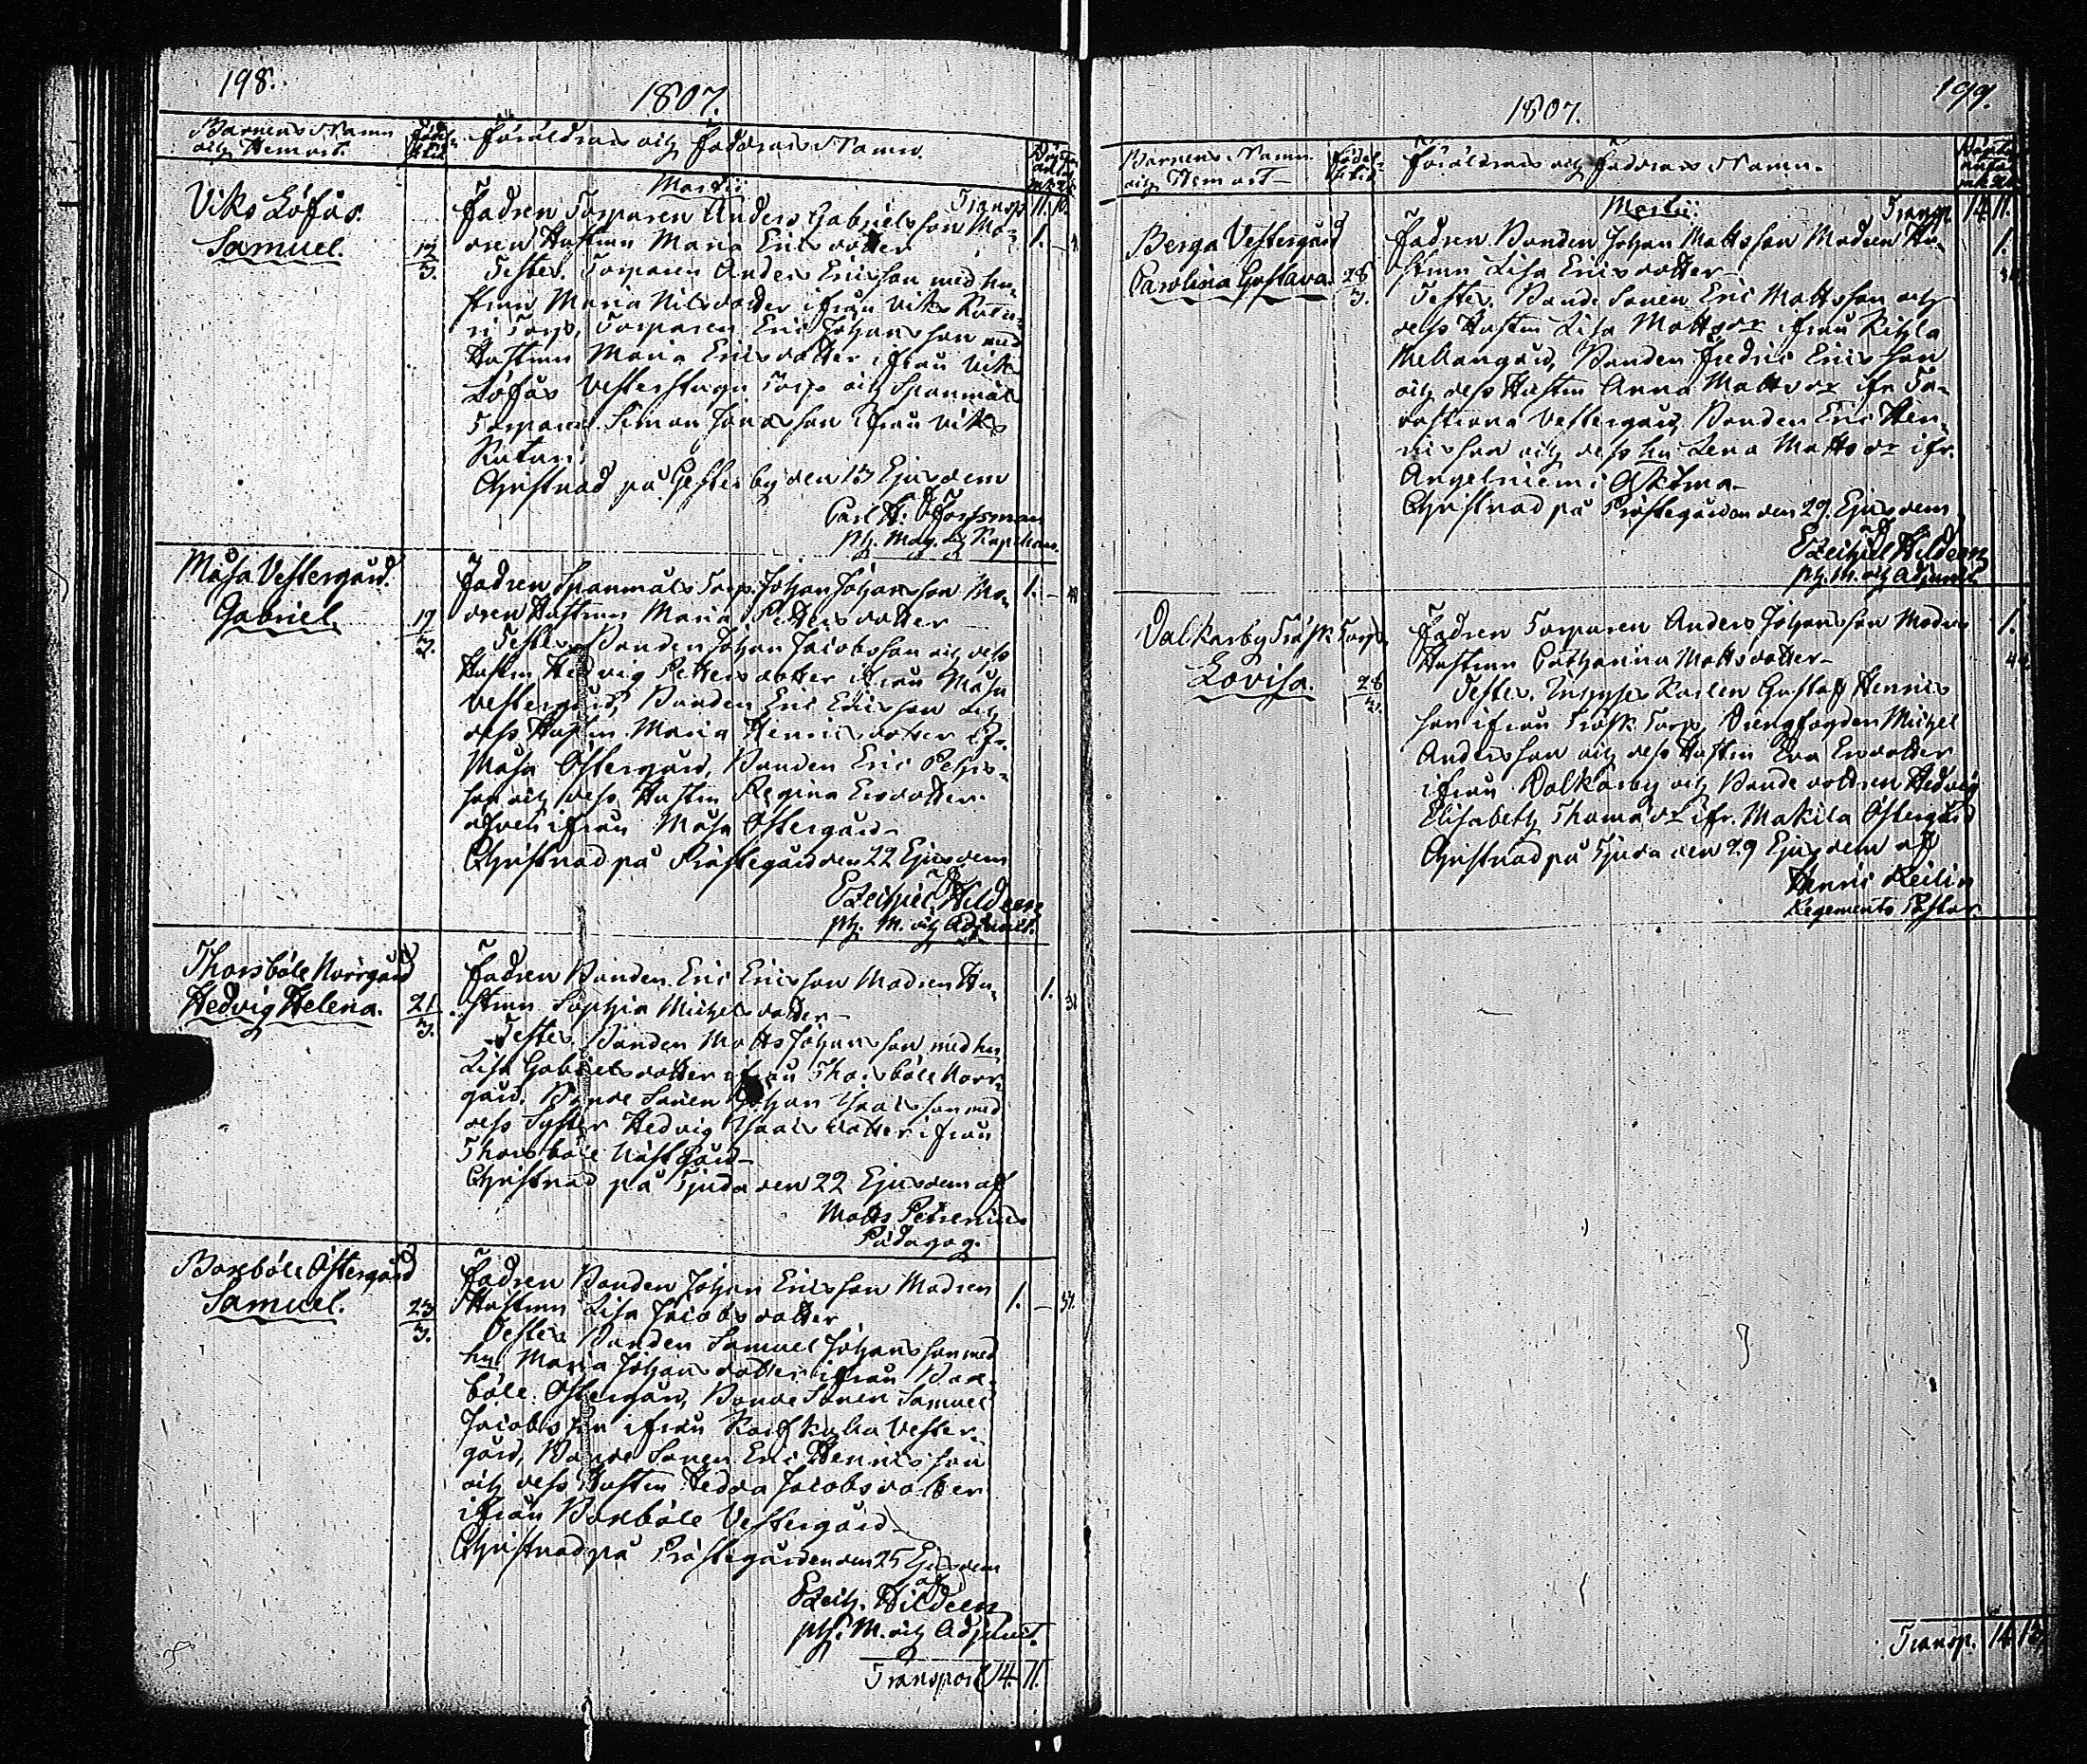 198.
1807.
Barnens Namn
och Hemort.
Födel-
setid
Föräldrars och Faddrars Namn.
Martii
Transp. 11. 10.
Viks Löfås.
Samuel.
12
3.
Fadren Torparen Anders Gabrielsson Mo-
dren Hustrun Maria Ericsdotter
1. –
Testes. Torparen Anders Ericsson med hu-
strun Maria Nilsdotter ifrån Viks Rutu-
ri Torp, Torparen Eric Johansson med
Hustrun Maria Ericsdotter ifrån Viks
Löfås Vesterstugu Torp och Spanmåls
Torparen Simon Jonasson ifrån Viks
Ruturi
Christnad på Gesterby den 13 Ejusdem
af
Carl H: Forssman
ph. Mag. och Kapellan.
Måsa Vestergård.
Gabriel.
19
3.
Fadren Spanmåls Torp. Johan Johansson Mo-
dren Hustrun Maria Pettersdotter
1. –
Testes Bonden Johan Jacobsson och dess
Hustru Hedvig Pettersdotter ifrån Måsa
Vestergård, Bonden Eric Ericsson och
dess Hustru Maria Henricsdotter ifr.
Måsa Östergård, Bonden Eric Pehrs-
son och dess Hustru Regina Ersdotter
äfven ifrån Måsa Östergård
Christnad på Prästegården 22 Ejusdem
af
Ezechiel Hildeen
ph. M. och Adjunct.
Thorsböle Norrgård
Hedvig Helena.
21
3.
Fadren Bonden Eric Ericsson Modren Hu-
strun Sophia Michelsdotter
1.
Testes. Bonden Matts Johansson med hu
Lisa Gabrielsdotter ifrån Thorsböle Norr-
gård. Bonde Sonen Johan Isacsson med
dess Syster Hedvig Isacsdotter ifrån
Thorsböle Nästgård
Christnad på Tjuda den 22 Ejusdem af
Matts Petrenius
Pädagog.
Boxböle Östergård
Samuel.
23
3.
Fadren Bonden Johan Ericsson Modren
Hustrun Lisa Jacobsdotter
1. –
Testes Bonden Samuel Johansson med
hu Maria Johansdotter ifrån Box-
böle Östergård, Bonde Sonen Samuel
Jacobsson ifrån Vester-
gård, Bonde Sonen Eric Henricsson
och dess Hustru Hedda Jacobsdotter
ifrån Boxböle Vestergård
Christnad på Prästegården den 25 Ejusdem
af
Ezech. Hildeen
ph. M. och Adjunct.
Transport 14. 11.
199.
1807.
Barnens Namn
och Hemort
Födel-
setid
Föräldrars och Faddrars Namn.
Martii.
Transp. 14 11.
Berga Vestergård
Carolina Gustava.
28
3.
Fadren Bonden Johan Mattsson Modren Hu-
strun Lisa Ericsdotter
1.
Testes. Bonde Sonen Eric Mattsson och
dess Hustru Lisa Mattsdr ifrån Rihla
Mellangård, Bonden Fredric Ericsson
och dess Hustru Anna Mattsdr ifr Ta-
Vestergård, Bonden Eric Hen-
ricsson och dess hu Lena Mattsdr ifr.
Angelniemi
Christnad på Prästegården den 29. Ejusdem
af
Ezechiel Hildeen
ph. M. och Adjunct
Dalkarby Träsk Torp
Lovisa.
28
3.
Fadren Torparen Anders Johansson Modren
Hustrun Catharina Mattsdotter
1.
Testes. Gustaf Henrics
son ifrån Träsk Torp, Michel
Andersson och dess Hustru Eva Ersdotter
ifrån Dalkarby och Bonde dottren Hedvig
Elisabeth Thomasdr ifr. Makila Östergård
Christnad på Tjuda den 29 Ejusdem af
Henric Keilin
Regements Pastor.
Transp. 14 13